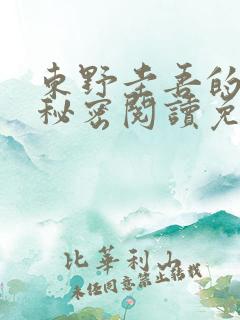 東野圭吾的
秘密閱讀免
比華利山
未经同意禁止转载